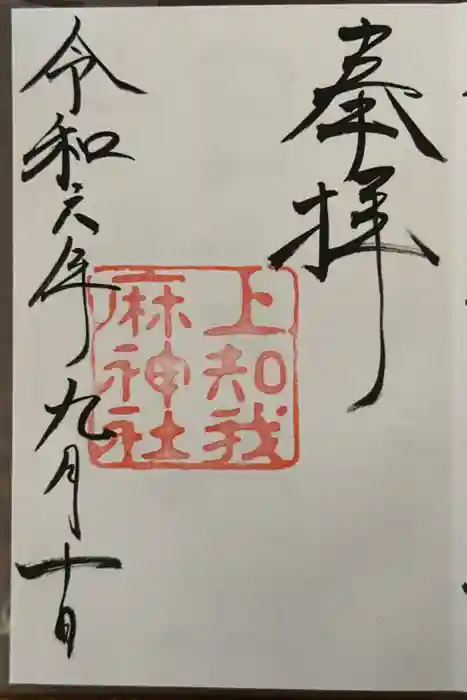 奉拝
上知我
麻神社
令和六年九月十日